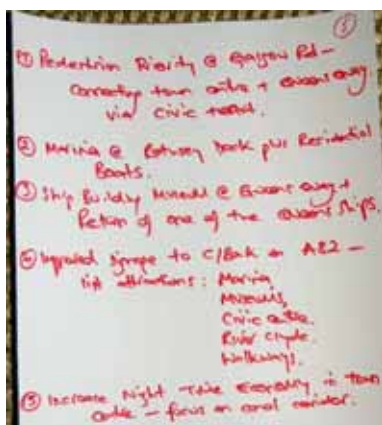 5
① Pedestrian Priority @ Glasgow Rd –
connecting town centre + Queens Quay
via civic
② Marina @ Rothesay Dock plus Residential
Boats.
③ Ship Building Museum @ Queens Quay +
Return of one of the Queens Ships.
④ Improved signage to C/Bank on A82 –
list attractions: Marina,
Museums,
Civic centre.
River Clyde.
Walkways.
⑤ Increase Night Time Economy in town
centre – focus on canal corridor.